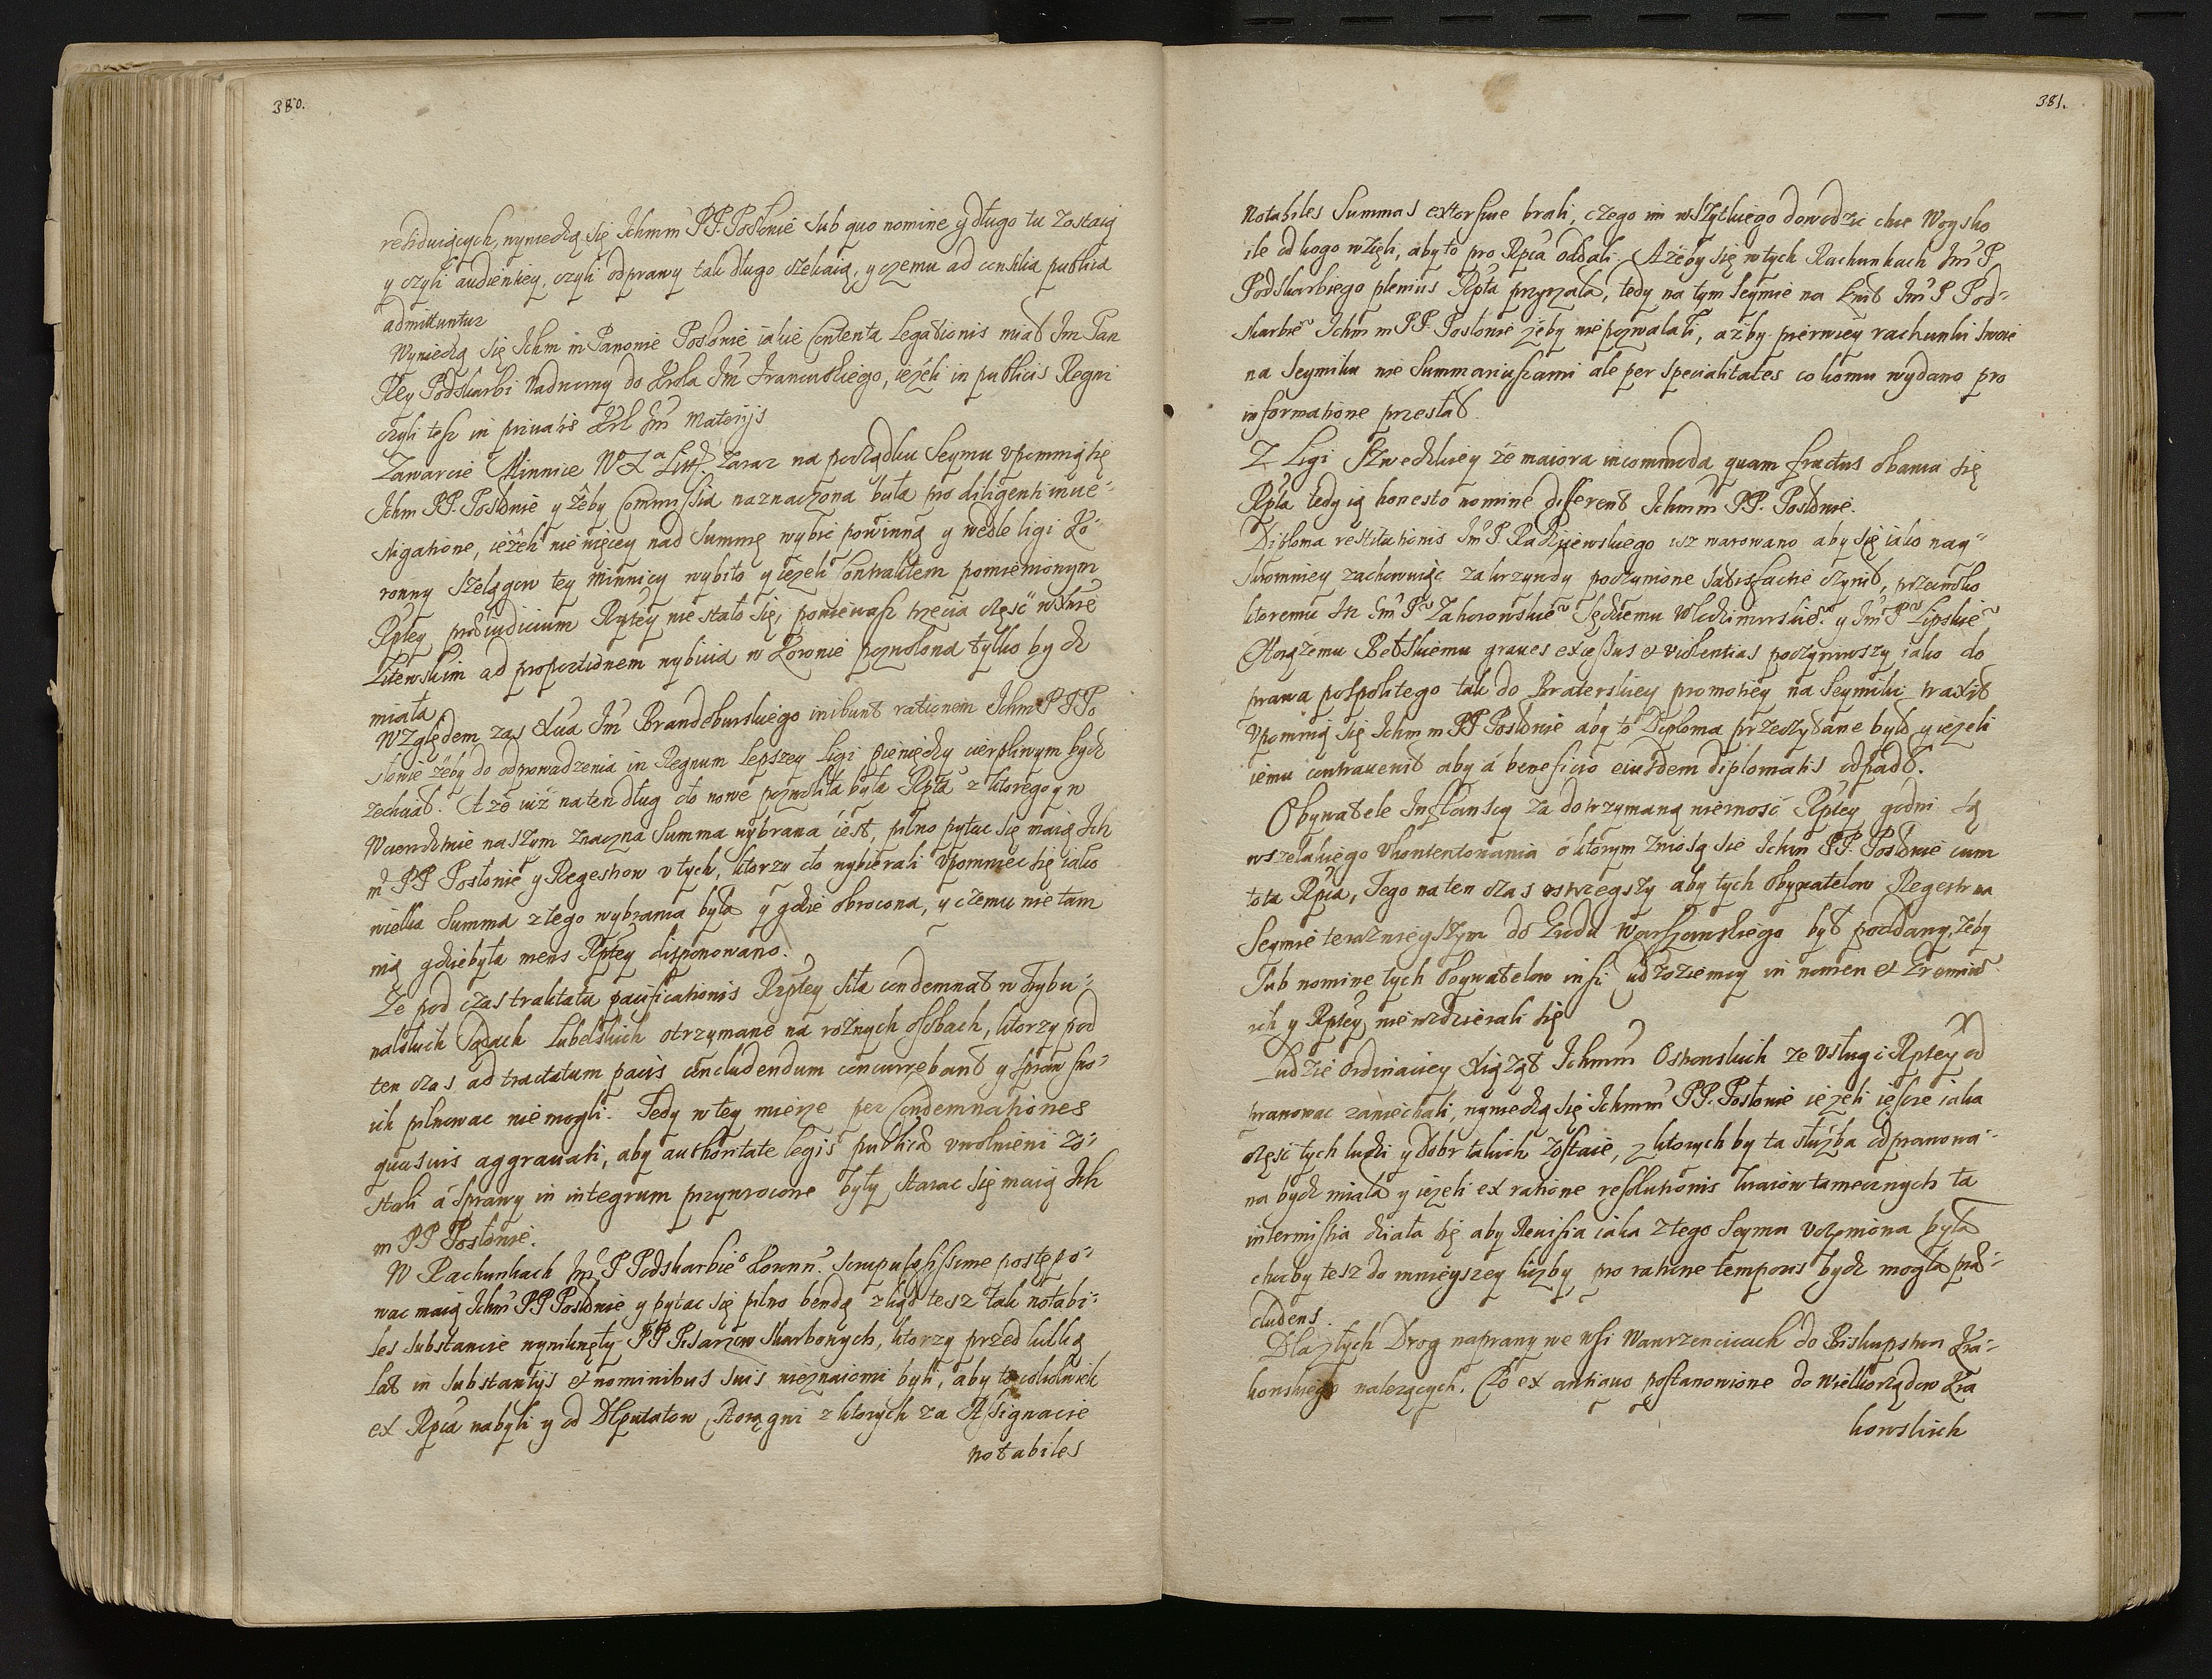 380.
residuiących, wywiedzą się Ichmm PP. Posłowie sub quo nomine y długo tu zostaią
y czyli audientiey, czyli odprawy tak długo czekaią, y czemu ad consilia publica
admittuntur
Wywiedzą się Ichm m Panowie Posłowie iakie Contenta Legationis miał Im Pan
Rey Podskarbi Nadworny do Krola Im Francuskiego, ieżeli in publicis Regni
czyli tesz in privatis Krl Im Materijs
Zawarcie Minnice W. X. Litt. Zaraz na początku Seymu upomnią się
Ichm PP. Posłowie y żeby Commissia naznaczona była pro diligenti inue-
stigatione, ieżeli nie więcey nad Summę wybic powinną y wedle ligi Ko-
ronny Szelągow tey Minnicy wybito y ieżeli Contraktem pomienionym
Rptey praeiudicium Rptey nie stało się, poniewasz trzecia część w Xtwie
Litewskim ad proportionem wybicia w Koronie pozwolona tylko bydz
miała
Względem zas Xcia Im Brandeburskiego inibunt rationem Ichm PP Po
słowie żeby do odprowadzenia in Regnum Lepszey Ligi pieniędzy cierpliwym bydz
zechciał. A że iuż na ten dług cło nowe pozwoliła była Rpta z ktorego y w
Woiewodztwie naszym znaczna Summa wybrana iest, pilno pytac się maią Ich
m PP Posłowie y Regestrow u tych, ktorzy cło wybierali upomniec się iako
wielka Summa z tego wybrania była y gdzie obrocona, y czemu nie tam
nią gdzie była mens Rptey disponowano.
Ze pod czas traktatu pacificationis Rzptey siła condemnat w Trybu-
nalskich Sądach Lubelskich otrzymane na rożnych osobach, ktorzy pod
ten czas ad tractatum pacis concludendum concurrebant y spraw swo-
ich pilnowac nie mogli. Tedy w tey mierze per Condemnationes
quasuis aggrauati, aby authoritate legis publica uwolnieni zo-
stali á sprawy in integrum przywrocone były starac się maią Ich
m PP Posłowie.
W Rachunkach Im P Podskarbie° Koronn. scrupulosissime postępo-
wac maią Ichm PP Posłowie y pytac się pilno bendą zkąd tesz tak notabi-
les substancie wyniknęły PP Pisarzow Skarbowych, ktorzy przed kilką
Lat in substantijs et nominibus suis nieznaiomi byli, aby to cokolwiek
ex Rpca nabyli y od Deputatow, Chorągwi z ktorych za Assignacie
notabiles
381.
Notabiles Summas extorsiue brali, czego im wszytkiego dowodzic chce Woysko
ile od kogo wzięli, aby to pro Rpca oddali. A żeby się w tych Rachunkach Im P
Podskarbiego plenius Rpta przyrzała, tedy na tym Seymie na kwit Im P Pod-
skarbie° Ichm m PP. Posłowie żeby nie pozwalali, ażby pierwiey rachunki swoie
na Seymiku nie Summariuszami ale per specialitates co komu wydano pro
informatione przesłał.
Z Ligi Szwedzkiey że maiora incommoda quam fructus obawia się
Rpta tedy ią honesto nomine different Ichmm PP. Posłowie.
Diploma restitutionis Im P. Radziiewskiego isz warowano aby się iako nay-
skromniey zachowuiąc za krzywdy poczynione satisfactie czynił, przeciwko
ktoremu Isz Im P° Zahorowskie° Sędziemu Włodzimirskie° y Im P° Lipskie°
Chorążemu Bełskiemu graues excessus et violentias poczyniwszy iako do
prawa pospolitego tak do Braterskiey promotiey na Seymiki traxit
upomnią się Ichm m PP Posłowie aby to Diploma przeczytane było y ieżeli
iemu contrauenit aby á beneficio eiusdem diplomatis odpadł.
Obywatele Inflantscy za dotrzymaną wierność Rptey godni są
wszelakiego ukontentowania o ktorym zniosą sie Ichm PP. Posłowie cum
tota Rpca, Tego na ten czas ostrzegszy aby tych obywatelow Regestr na
Seymie terażnieyszym do Grodu Warszawskiego był poddany, żeby
Sub nomine tych obywatelow insi cudzoziemcy in nomen et Gremium
ich y Rptey nie wdzierali się
Ludzie ordinaciey Xiążąt Ichmm Ostrowskich ze Usługi Rptey od
prawowac zaniechali, wywiedzą się Ichmm PP. Posłowie ieżeli iescze iaka
część tych ludzi y dobr takich zostaie, z ktorych by ta służba odprawowa-
na bydz miała y ieżeli ex ratione resolutionis kraiow tamecznych ta
intermissia działa się aby Reuisia iaka z tego Seymu uczyniona była
chocby tesz do mnieyszey liczby pro ratione temporis bydz mogła prae-
cludens.
Dla złych Drog naprawy we wsi Wawrzencicach do Biskupstwa Kra-
kowskiego nalezących. Co ex antiquo postanowione do Wielkorządow Kra
kowskich